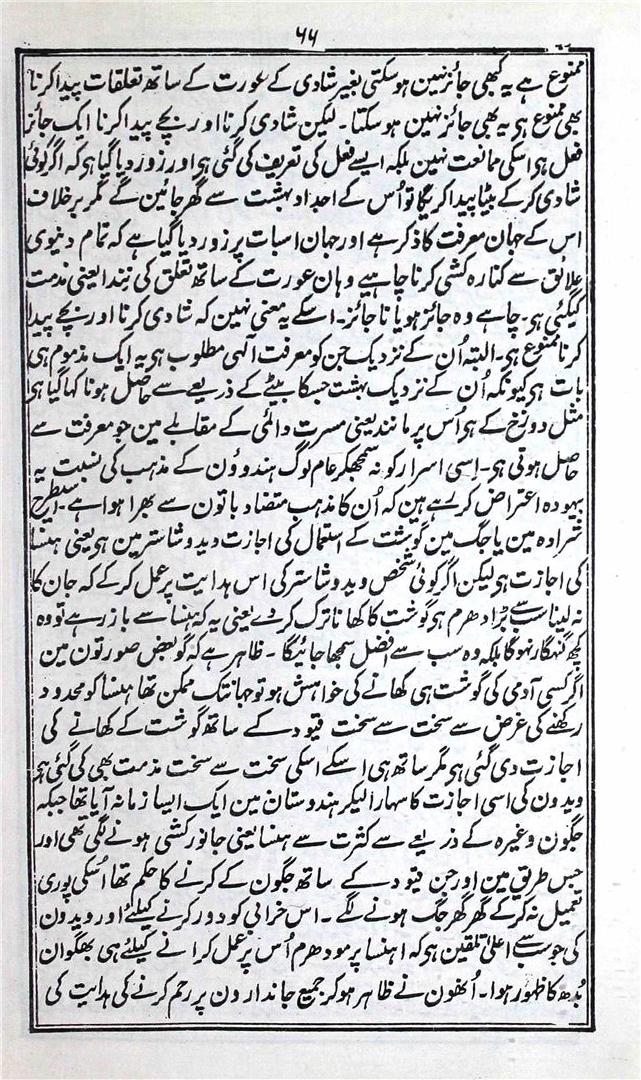 ۶۶
ممنوع ہے یہ کبھی جائز نہین ہوسکتی بغیر شادی کے عورت کے ساتھ تعلقات پیدا کرنا
بھی ممنوع ہی یہ بھی جائز نہین ہوسکتا۔ لیکن شادی کرنا اور بچے پیدا کرنا ایک جائز
فعل ہی اسکی ممانعت نہین بلکہ ایسے فعل کی تعریف کی گئی ہی اور زور دیا گیا ہی کہ اگر کوئی
شادی کر کے بیٹا پیدا کریگا تو اُس کے اجداد بہشت سے گھر جائین گے مگر برخلاف
اس کے جہان معرفت کا ذکر ہے اور جہان اسبات پر زور دیا گیا ہے کہ تمام دنیوی
علائق سے کنارہ کشی کرنا چاہیے وہان عورت کے ساتھ تعلق کی نِندا یعنی مذمت
کیگئی ہی۔ چاہے وہ جائز ہو یا ناجائز۔ اسکے یہ معنی نہین کہ شادی کرنا اور بچے پیدا
کرنا ممنوع ہی۔ البتہ اُن کے نزدیک جن کو معرفت الٰہی مطلوب ہی یہ ایک مذموم ہی
بات ہی کیونکہ اُن کے نزدیک بہشت جسکا بیٹے کے ذریعے سے حاصل ہونا کہا گیا ہی
مثل دوزخ کے ہی اُس پرمانند یعنی مسرت دائمی کے مقابلے مین جو معرفت سے
حاصل ہوتی ہی۔ اِسی اسرار کو نہ سمجھکر عام لوگ ہندوؤن کے مذہب کی نسبت یہ
بیہودہ اعتراض کر رہے ہین کہ اُن کا مذہب متضاد باتون سے بھرا ہوا ہے۔ اسیطرح
شرادہ مین یا جگ مین گوشت کے استعمال کی اجازت وید و شاستر مین ہی یعنی ہنسا
کی اجازت ہی لیکن اگر کوئی شخص وید و شاستر کی اس ہدایت پر عمل کر کے کہ جان کا
نہ لینا سب سے بڑا دھرم ہی گوشت کا کھانا ترک کر دے یعنی یہ کہ ہنسا سے باز رہے تو وہ
کچھ گنہگار نہوگا بلکہ وہ سب سے افضل سمجھا جائیگا۔ ظاہر ہے کہ گو بعض صورتون مین
اگر کسی آدمی کی گوشت ہی کھانے کی خواہش ہو تو جہانتک ممکن تھا ہنسا کو محدود
رکھنے کی غرض سے سخت سے سخت قیود کے ساتھ گوشت کے کھانے کی
اجازت دی گئی ہی مگر ساتھ ہی اسکے اسکی سخت سے سخت مذمت بھی کی گئی ہی
ویدون کی اسی اجازت کا سہارا لیکر ہندوستان مین ایک ایسا زمانہ آیا تھا جبکہ
جگون وغیرہ کے ذریعے سے کثرت سے ہنسا یعنی جانور کشی ہونے لگی تھی اور
جس طریق مین اور جن قیود کے ساتھ جگون کے کرنے کا حکم تھا اُسکی پوری
تعمیل نہ کر کے گھر گھر جگ ہونے لگے۔ اس خرابی کو دور کرنے کیلئے اور ویدون
کی جو سب سے اعلیٰ تلقین ہی کہ اہنسا پرمودھرم اُس پر عمل کرانے کیلئے ہی بھگوان
بُدھ کا ظہور ہوا۔ اُنھون نے ظاہر ہو کر جمیع جاندارون پر رحم کرنے کی ہدایت کی